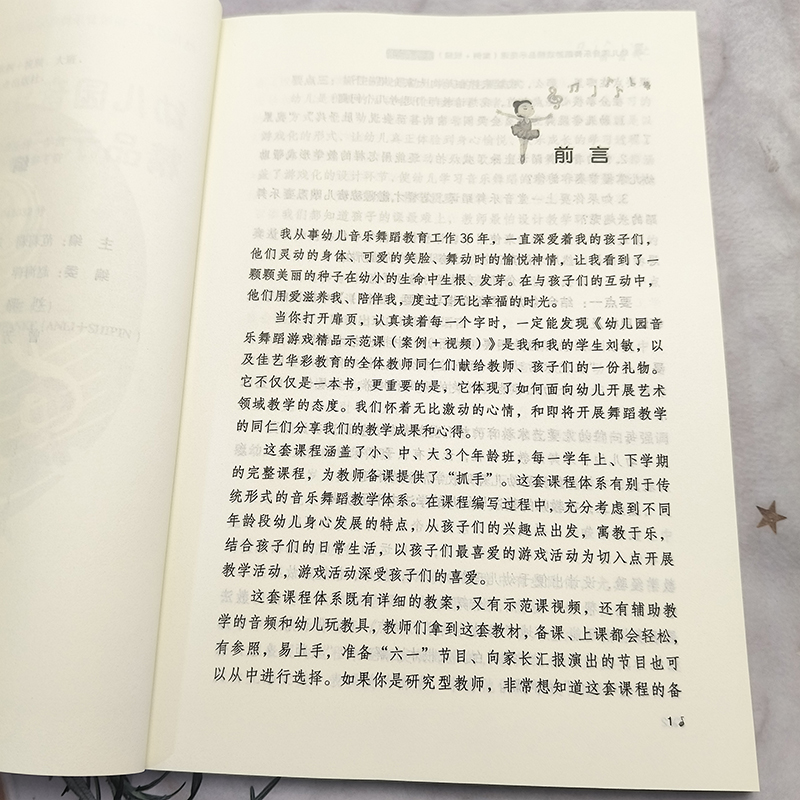 前言
我从事幼儿音乐舞蹈教育工作36年，一直深爱着我的孩子们，
他们灵动的身体、可爱的笑脸、舞动时的愉悦神情，让我看到了一
颗颗美丽的种子在幼小的生命中生根、发芽。在与孩子们的互动中，
他们用爱滋养我、陪伴我，度过了无比幸福的时光。
当你打开扉页，认真读着每一个字时，一定能发现《幼儿园音
乐舞蹈游戏精品示范课（案例＋视频）》是我和我的学生刘敏，以
及佳艺华彩教育的全体教师同仁们献给教师、孩子们的一份礼物。
它不仅仅是一本书，更重要的是，它体现了如何面向幼儿开展艺术
领域教学的态度。我们怀着无比激动的心情，和即将开展舞蹈教学
的同仁们分享我们的教学成果和心得。
这套课程涵盖了小、中、大3个年龄班，每一学年上、下学期
的完整课程，为教师备课提供了“抓手”。这套课程体系有别于传
统形式的音乐舞蹈教学体系。在课程编写过程中，充分考虑到不同
年龄段幼儿身心发展的特点，从孩子们的兴趣点出发，寓教于乐，
结合孩子们的日常生活，以孩子们最喜爱的游戏活动为切入点开展
教学活动，游戏活动深受孩子们的喜爱。
这套课程体系既有详细的教案，又有示范课视频，还有辅助教
学的音频和幼儿玩教具，教师们拿到这套教材，备课、上课都会轻松，
有参照，易上手，准备“六一”节目、向家长汇报演出的节目也可
以从中进行选择。如果你是研究型教师，非常想知道这套课程的备
1